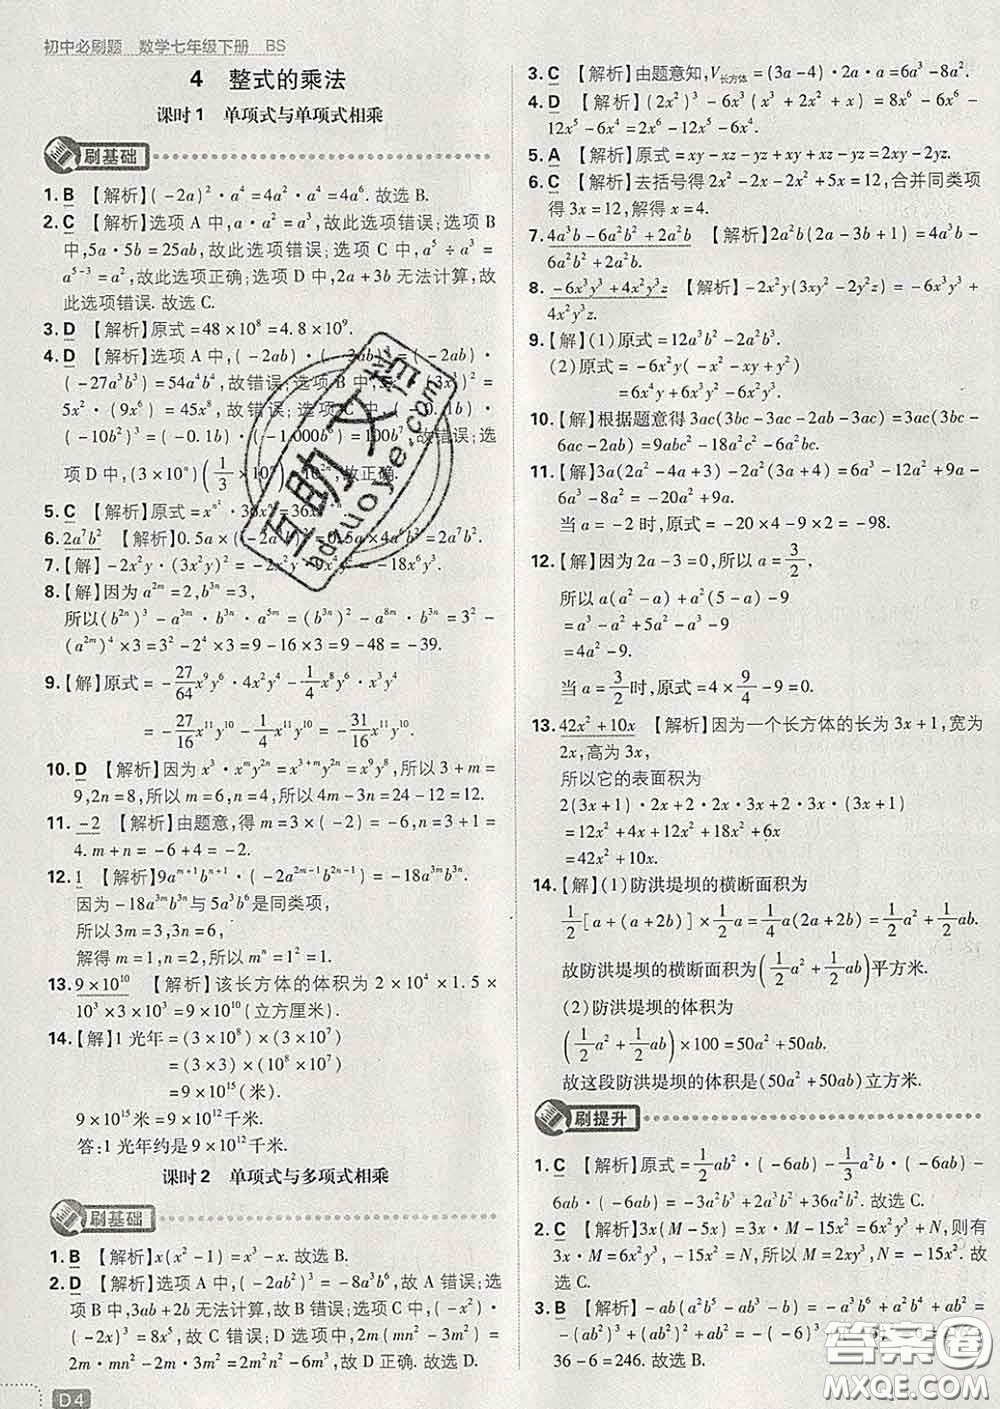 初中必刷题 数学七年级下册 BS
4 整式的乘法
课时1 单项式与单项式相乘
刷基础
1. B 【解析】(-2a)²·a⁴=4a²·a⁴=4a⁶. 故选 B.
2. C 【解析】选项 A 中, a·a²=a³, 故此选项错误; 选项 B
中, 5a·5b=25ab, 故此选项错误; 选项 C 中, a⁵÷a³=
a⁵⁻³=a², 故此选项正确; 选项 D 中, 2a+3b 无法计算, 故
此选项错误. 故选 C.
3. D 【解析】原式=48×10⁸=4.8×10⁹.
4. D 【解析】选项 A 中, (-2ab)·(-3ab)³=(-2ab)·
(-27a³b³)=54a⁴b⁴, 故错误; 选项 B 中,
5x²·(9x⁶)=45x⁸, 故错误; 选项 C 中, (-0.1b)·
(-10b²)³=(-0.1b)·(-1 000b⁶)=100b⁷, 故错误;
选项 D 中, (3×10ⁿ)(1/3×10ⁿ)=10²ⁿ, 故正确.
5. C 【解析】原式=
6. 2a⁷b² 【解析】0.5a×(-2a³b)²=0.5a×4a⁶b²=2a⁷b².
7. 【解】-2x²y·(3x²y)²=-2x²y·9x⁴y²=-18x⁶y³.
8. 【解】因为 a²ᵐ=2, b³ⁿ=3,
所以(b²ⁿ)³-a³ᵐ·b³ⁿ·a⁵ᵐ=(b³ⁿ)²-a⁸ᵐ·b³ⁿ=3²-
(a²ᵐ)⁴×3=3²-2⁴×3=9-16×3=9-48=-39.
9. 【解】原式=-27/64x⁹y⁶·4x²y⁴-1/4x⁸y⁶·x³y⁴
=-27/16x¹¹y¹⁰-1/4x¹¹y¹⁰=-31/16x¹¹y¹⁰.
10. D 【解析】因为 x³·xᵐy²ⁿ=x³⁺ᵐy²ⁿ=x⁹y⁸, 所以 3+m=
9, 2n=8, 所以 m=6, n=4, 所以 4m-3n=24-12=12.
11. -2 【解析】由题意, 得 m=3×(-2)=-6, n=3+1=
4. m+n=-6+4=-2.
12. 1 【解析】9aᵐ⁺¹bⁿ⁺¹·(-2a²ᵐ⁻¹b²ⁿ⁻¹)=-18a³ᵐb³ⁿ,
因为-18a³ᵐb³ⁿ与 5a³b⁶是同类项,
所以 3m=3, 3n=6,
解得 m=1, n=2, 所以 mⁿ=1²=1.
13. 9×10¹⁰ 【解析】该长方体的体积为 2×10⁴×1.5×
10³×3×10³=9×10¹⁰(立方厘米).
14. 【解】1 光年=(3×10⁸)×(3×10⁷)
=(3×3)×(10⁸×10⁷)
=9×10¹⁵(米).
9×10¹⁵米=9×10¹²千米.
答: 1 光年约是 9×10¹²千米.
课时2 单项式与多项式相乘
刷基础
1. B 【解析】x(x²-1)=x³-x. 故选 B.
2. D 【解析】选项 A 中, (-2ab²)³=-8a³b⁶, 故 A 错误; 选
项 B 中, 3ab+2b 无法计算, 故 B 错误; 选项 C 中, (-x²)·
(-2x)³=8x⁵, 故 C 错误; 选项 D 中, 2m(mn²-3m²)=
2m·mn²-2m·3m²=2m²n²-6m³, 故 D 正确. 故选 D.
D4
3. C 【解析】由题意知, V长方体=(3a-4)·2a·a=6a³-8a².
4. D 【解析】(2x²)³-6x³(x³+2x²+x)=8x⁶-6x⁶-
12x⁵-6x⁴=2x⁶-12x⁵-6x⁴.
5. A 【解析】原式=xy-xz-yz+xy+xz-yz=2xy-2yz.
6. C 【解析】去括号得 2x²-2x-2x²+5x=12, 合并同类项
得 3x=12, 解得 x=4.
7. 4a³b-6a²b²+2a²b 【解析】2a²b(2a-3b+1)=4a³b-
6a²b²+2a²b.
8. -6x³y³+4x²y³z 【解析】-2x²y(3xy²-2y²z)=-6x³y³+
4x²y³z.
9. 【解】(1)原式=12a³b²-2a²b³.
(2)原式=-6x²y(-x²-xy+y²)
=6x⁴y+6x³y²-6x²y³.
10. 【解】根据题意得 3ac(3bc-3ac-2ab-3ac)=3ac(3bc-
6ac-2ab)=9abc²-18a²c²-6a²bc.
11. 【解】3a(2a²-4a+3)-2a²(3a+4)=6a³-12a²+9a-
6a³-8a²=-20a²+9a.
当 a=-2 时, 原式=-20×4-9×2=-98.
12. 【解】因为 2a-3=0, 所以 a=3/2,
所以 a(a²-a)+a²(5-a)-9
=a³-a²+5a²-a³-9
=4a²-9.
当 a=3/2时, 原式=4×9/4-9=0.
13. 42x²+10x 【解析】因为一个长方体的长为 3x+1, 宽为
2x, 高为 3x,
所以它的表面积为
2(3x+1)·2x+2×2x·3x+2×3x·(3x+1)
=12x²+4x+12x²+18x²+6x
=42x²+10x.
14. 【解】(1)防洪堤坝的横断面积为
1/2[a+(a+2b)]×1/2a=1/4a(2a+2b)=1/2a²+1/2ab.
故防洪堤坝的横断面积为(1/2a²+1/2ab)平方米.
(2)防洪堤坝的体积为
(1/2a²+1/2ab)×100=50a²+50ab.
故这段防洪堤坝的体积是(50a²+50ab)立方米.
刷提升
1. C 【解析】原式=1/2ab²·(-6ab)-1/3a²b·(-6ab)-
6ab·(-6ab)=-3a²b³+2a³b²+36a²b². 故选 C.
2. C 【解析】3x(M-5x)=3x·M-15x²=6x²y³+N, 则有
3x·M=6x²y³, -15x²=N, 所以 M=2xy³, N=-15x². 故
选 C.
3. B 【解析】-ab(a²b⁵-ab³-b)=-a³b⁶+a²b⁴+ab²=
-(ab²)³+(ab²)²+ab²=-(-6)³
36-6=246. 故选 B.
互助文君
hdzuoye.com
答案圈
MXQE.COM